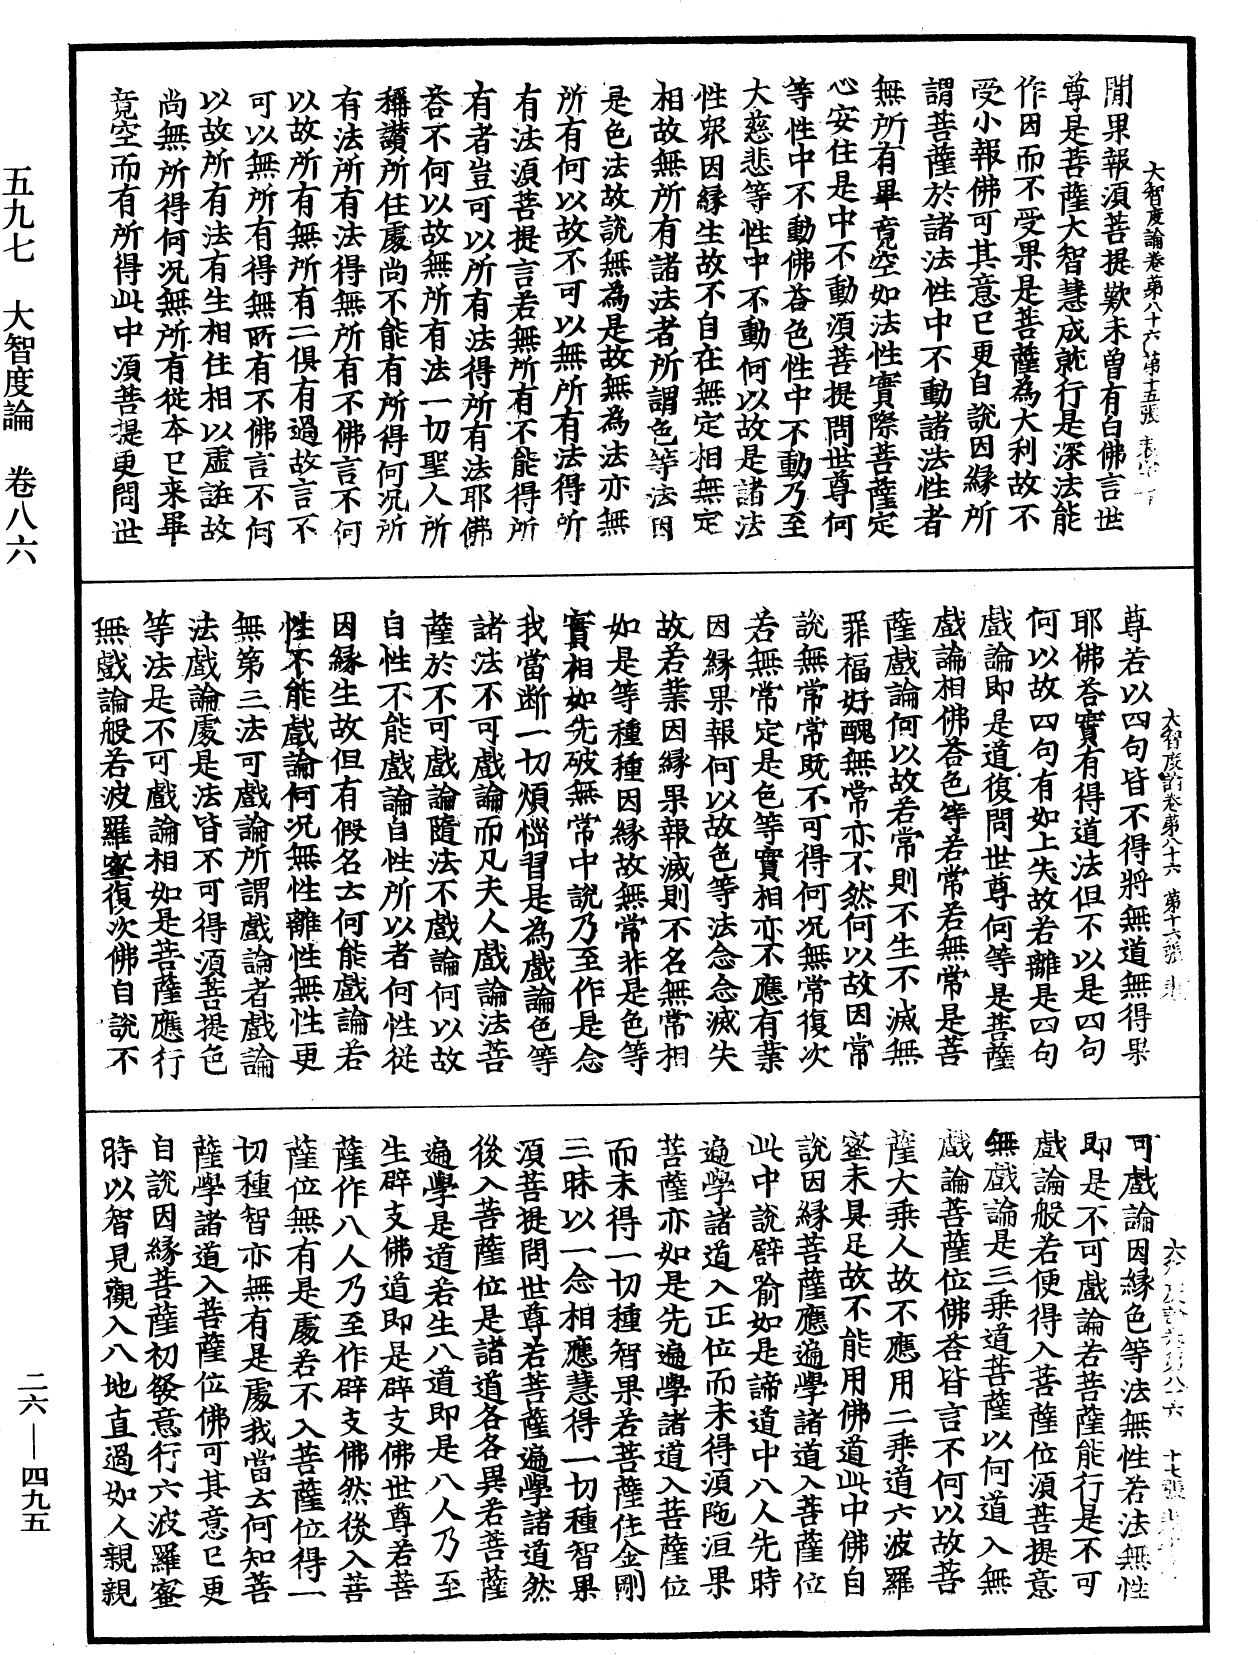 大智度論卷第八十六 第十五張
聞果報須菩提歎未曾有白佛言世
尊是菩薩大智慧成就行是深法能
作因而不受果是菩薩為大利故不
受小報佛可其意已更自說因緣所
謂菩薩於諸法性中不動諸法性者
無所有畢竟空如法性實際菩薩定
心安住是中不動須菩提問世尊何
等性中不動佛荅色性中不動乃至
大慈悲等性中不動何以故是諸法
性衆因緣生故不自在無定相無定
相故無所有諸法者所謂色等法因
是色法故說無為是故無為法亦無
所有何以故不可以無所有法得所
有法須菩提言若無所有不能得所
有者豈可以所有法得所有法耶佛
荅不何以故無所有法一切聖人所
稱讚所住處尚不能有所得何況所
有法所有法得無所有不佛言不何
以故所有無所有二俱有過故言不
可以無所有得無所有不佛言不何
以故所有法有生相住相以虛誑故
尚無所得何況無所有從本已来畢
竟空而有所得此中須菩提更問世
大智度論卷第八十六 第十六張
尊若以四句皆不得將無道無得果
耶佛荅實有得道法但不以是四句
何以故四句有如上失故若離是四句
戲論即是道復問世尊何等是菩薩
戲論相佛荅色等若常若無常是菩
薩戲論何以故若常則不生不滅無
罪福好醜無常亦不然何以故因常
說無常常既不可得何況無常復次
若無常定是色等實相亦不應有業
因緣果報何以故色等法念念滅失
故若業因緣果報滅則不名無常相
如是等種種因緣故無常非是色等
實相如先破無常中說乃至作是念
我當断一切煩惱習是為戲論色等
諸法不可戲論而凡夫人戲論法菩
薩於不可戲論隨法不戲論何以故
自性不能戲論自性所以者何性從
因緣生故但有假名云何能戲論若
性不能戲論何況無性離性無性更
無第三法可戲論所謂戲論者戲論
法戲論處是法皆不可得須菩提色
等法是不可戲論相如是菩薩應行
無戲論般若波羅蜜復次佛自說不
可戲論因緣色等法無性若法無性
即是不可戲論若菩薩能行是不可
戲論般若便得入菩薩位須菩提意
無戲論是三乘道菩薩以何道入無
戲論菩薩位佛荅皆言不何以故菩
薩大乘人故不應用二乘道六波羅
蜜未具足故不能用佛道此中佛自
說因緣菩薩應遍學諸道入菩薩位
此中說譬喻如是諦道中八人先時
遍學諸道入正位而未得須陁洹果
菩薩亦如是先遍學諸道入菩薩位
而未得一切種智果若菩薩住金剛
三昧以一念相應慧得一切種智果
須菩提問世尊若菩薩遍學諸道然
後入菩薩位是諸道各各異若菩薩
遍學是道若生八道即是八人乃至
生辟支佛道即是辟支佛世尊若菩
薩作八人乃至作辟支佛然後入菩
薩位無有是處若不入菩薩位得一
切種智亦無有是處我當云何知菩
薩學諸道入菩薩位佛可其意已更
自說因緣菩薩初發意行六波羅蜜
時以智見觀入八地直過如人親親
五九七 大智度論 卷八六
二六—四九五